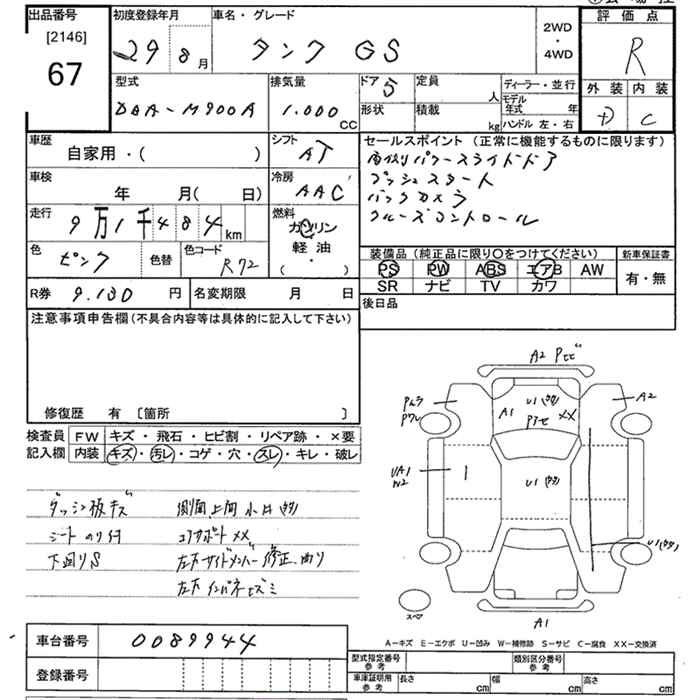 出品番号
[2146]
67
初度登録年月
29 8 月
車名・グレード
タンク GS
2WD
・
4WD
評価点
R
外装 内装
D C
型式
DBA-M900A
排気量
1.000 CC
ドア 5
形状
定員 人
積載 kg
ディーラー・並行
モデル年式 年
ハンドル 左・右
車歴
自家用・( )
シフト
AT
車検
年 月( 日)
冷房
AAC
走行
9万1千484 km
燃料
ガソリン
軽油
( ・ )
色
ピンク
色替
色コード
R72
R券 9.130 円
名変期限 月 日
セールスポイント (正常に機能するものに限ります)
両側パワースライドドア
プッシュスタート
バックカメラ
クルーズコントロール
装備品 (純正品に限り〇をつけてください)
PS PW ABS エアB AW
SR ナビ TV カワ
新車保証書
有・無
後日品
注意事項申告欄 (不具合内容等は具体的に記入して下さい)
修復歴 有 [箇所 ]
検査員記入欄
FW キズ・飛石・ヒビ割・リペア跡・×要
内装 キズ・汚レ・コゲ・穴・スレ・キレ・破レ
ダッシュ板キズ
シートのり付
下回りS
コアサポートXX
左右サイドメンバー修正、曲り
左右インパネヒズミ
A2
A1
XX
A2
U1
1
A1
スペア
A-キズ E-エクボ U-凹み W-補修跡 S-サビ C-腐食 XX-交換済
車台番号 0089944
登録番号
型式指定番号 参考
類別区分番号 参考
車庫証明用 参考
長さ cm
幅 cm
高さ cm